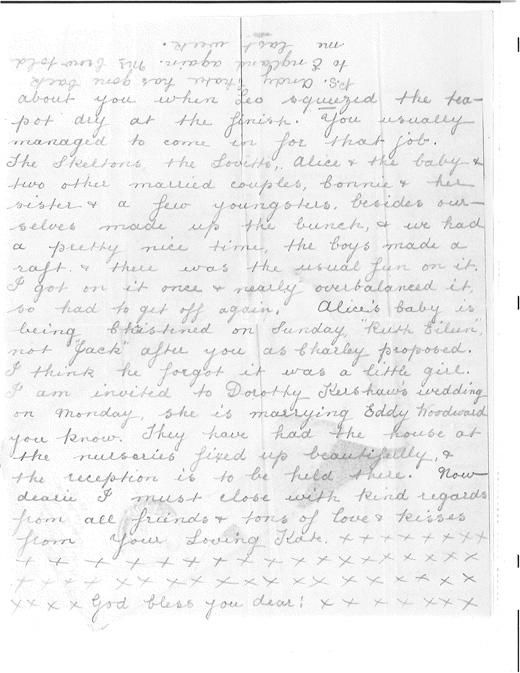 P.S. Andy Thaw has gone back
to England again. His brow told
me last week.
about you when Leo squeezed the tea-
pot dry at the finish. You usually
managed to come in for that job.
The Skeltons, the Lovitts, Alice & the baby &
two other married couples, Connie & her
sister & a few youngsters, besides our-
selves made up the bunch, & we had
a pretty nice time, the boys made a
raft & there was the usual fun on it.
I got on it once & nearly overbalanced it,
so had to get off again. Alice's baby is
being Christined on Sunday, "Ruth Eileen",
not "Jack" after you as Charley proposed.
I think he forgot it was a little girl.
I am invited to Dorothy Kershaw's wedding
on Monday, she is marrying Eddy Woodward
you know. They have had the house at
the nurseries fixed up beautifully, &
the reception is to be held there. Now
dearie I must close with kind regards
from all friends & tons of love & kisses
from Your Loving Kate. x x x x x x x x
x x x x x x x x x x x x x x x x x x
x x x x x x x x x x x x x x x x x x
x x x x God bless you dear! x x x x x x x x